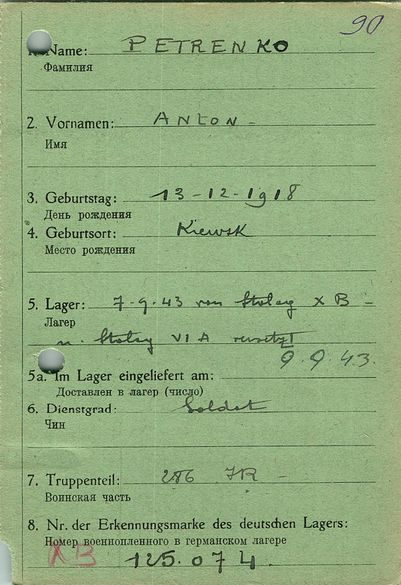 90
1. Name: PETRENKO
Фамилия
2. Vornamen: ANTON -
Имя
3. Geburtstag: 13-12-1918
День рождения
4. Geburtsort: Kiewsk
Место рождения
5. Lager: 7-9-43 von Stalag X B -
Лагер
n. Stalag VI A versetzt
9.9.43.
5a. Im Lager eingeliefert am:
Доставлен в лагер (число)
6. Dienstgrad: Soldat
Чин
7. Truppenteil: 286 JR -
Воинская часть
8. Nr. der Erkennungsmarke des deutschen Lagers:
Номер военнопленного в германском лагере
XB 125.074.